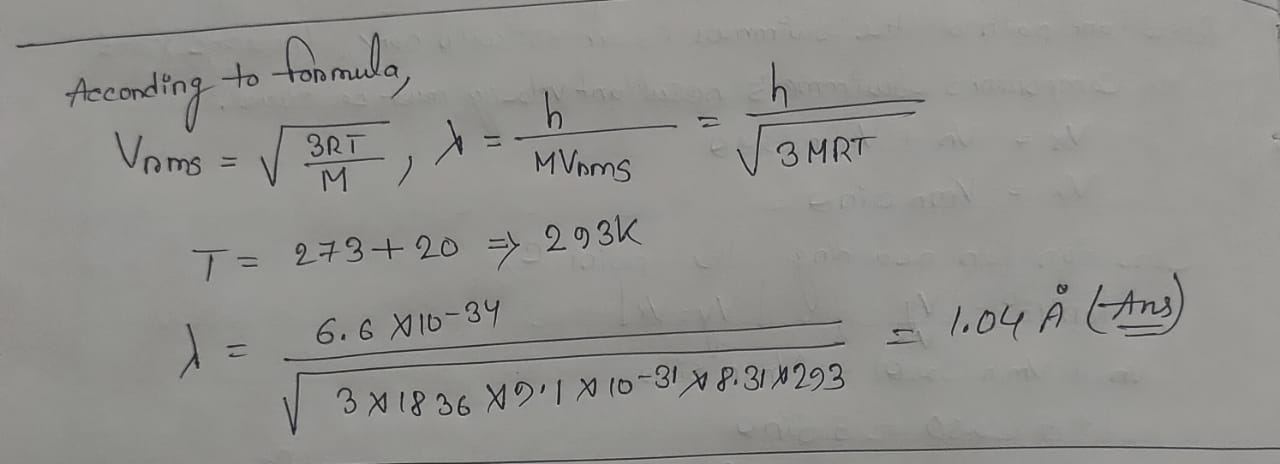 According to formula,
Vrms = √(3RT/M), λ = h/MVrms = h/√3MRT
T = 273+20 ⇒ 293K
λ = 6.6×10⁻³⁴/√3×1836×9.1×10⁻³¹×8.31×293 = 1.04 Å (Ans)